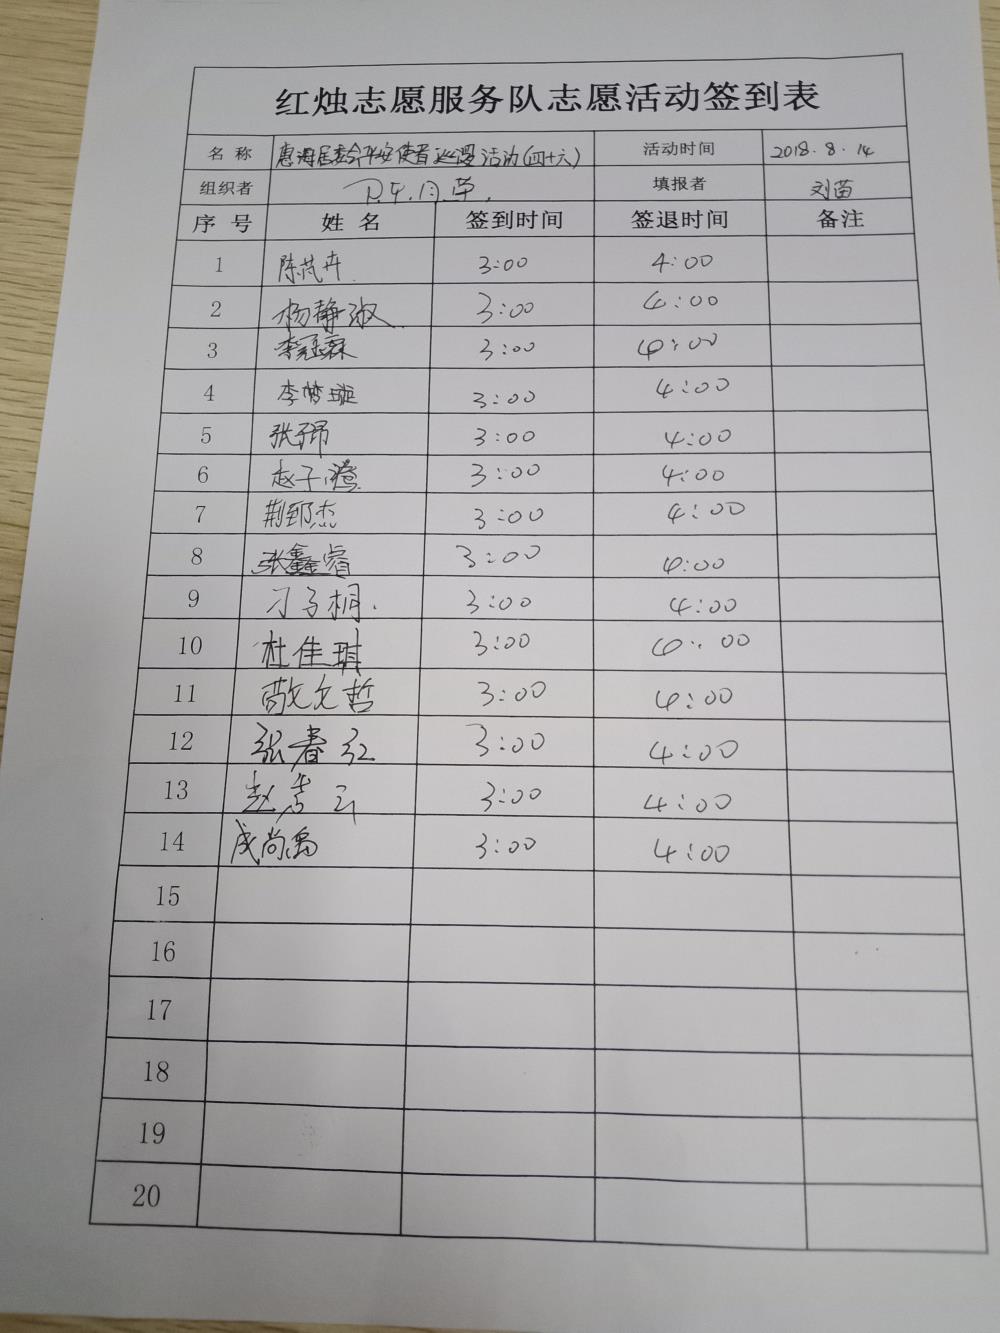 红烛志愿服务队志愿活动签到表
名 称 惠海居委会平安使者巡逻活动(四十六) 活动时间 2018.8.14
组织者 填报者 刘苗
序 号 姓 名 签到时间 签退时间 备注
1 陈芃卉 3:00 4:00
2 杨静淑 3:00 4:00
3 李冠霖 3:00 4:00
4 李梦璇 3:00 4:00
5 张 3:00 4:00
6 赵子腾 3:00 4:00
7 荆郅杰 3:00 4:00
8 张鑫睿 3:00 4:00
9 刁子桐. 3:00 4:00
10 杜佳琪 3:00 4:00
11 允哲 3:00 4:00
12 张春红 3:00 4:00
13 赵秀云 3:00 4:00
14 成尚禹 3:00 4:00
15
16
17
18
19
20